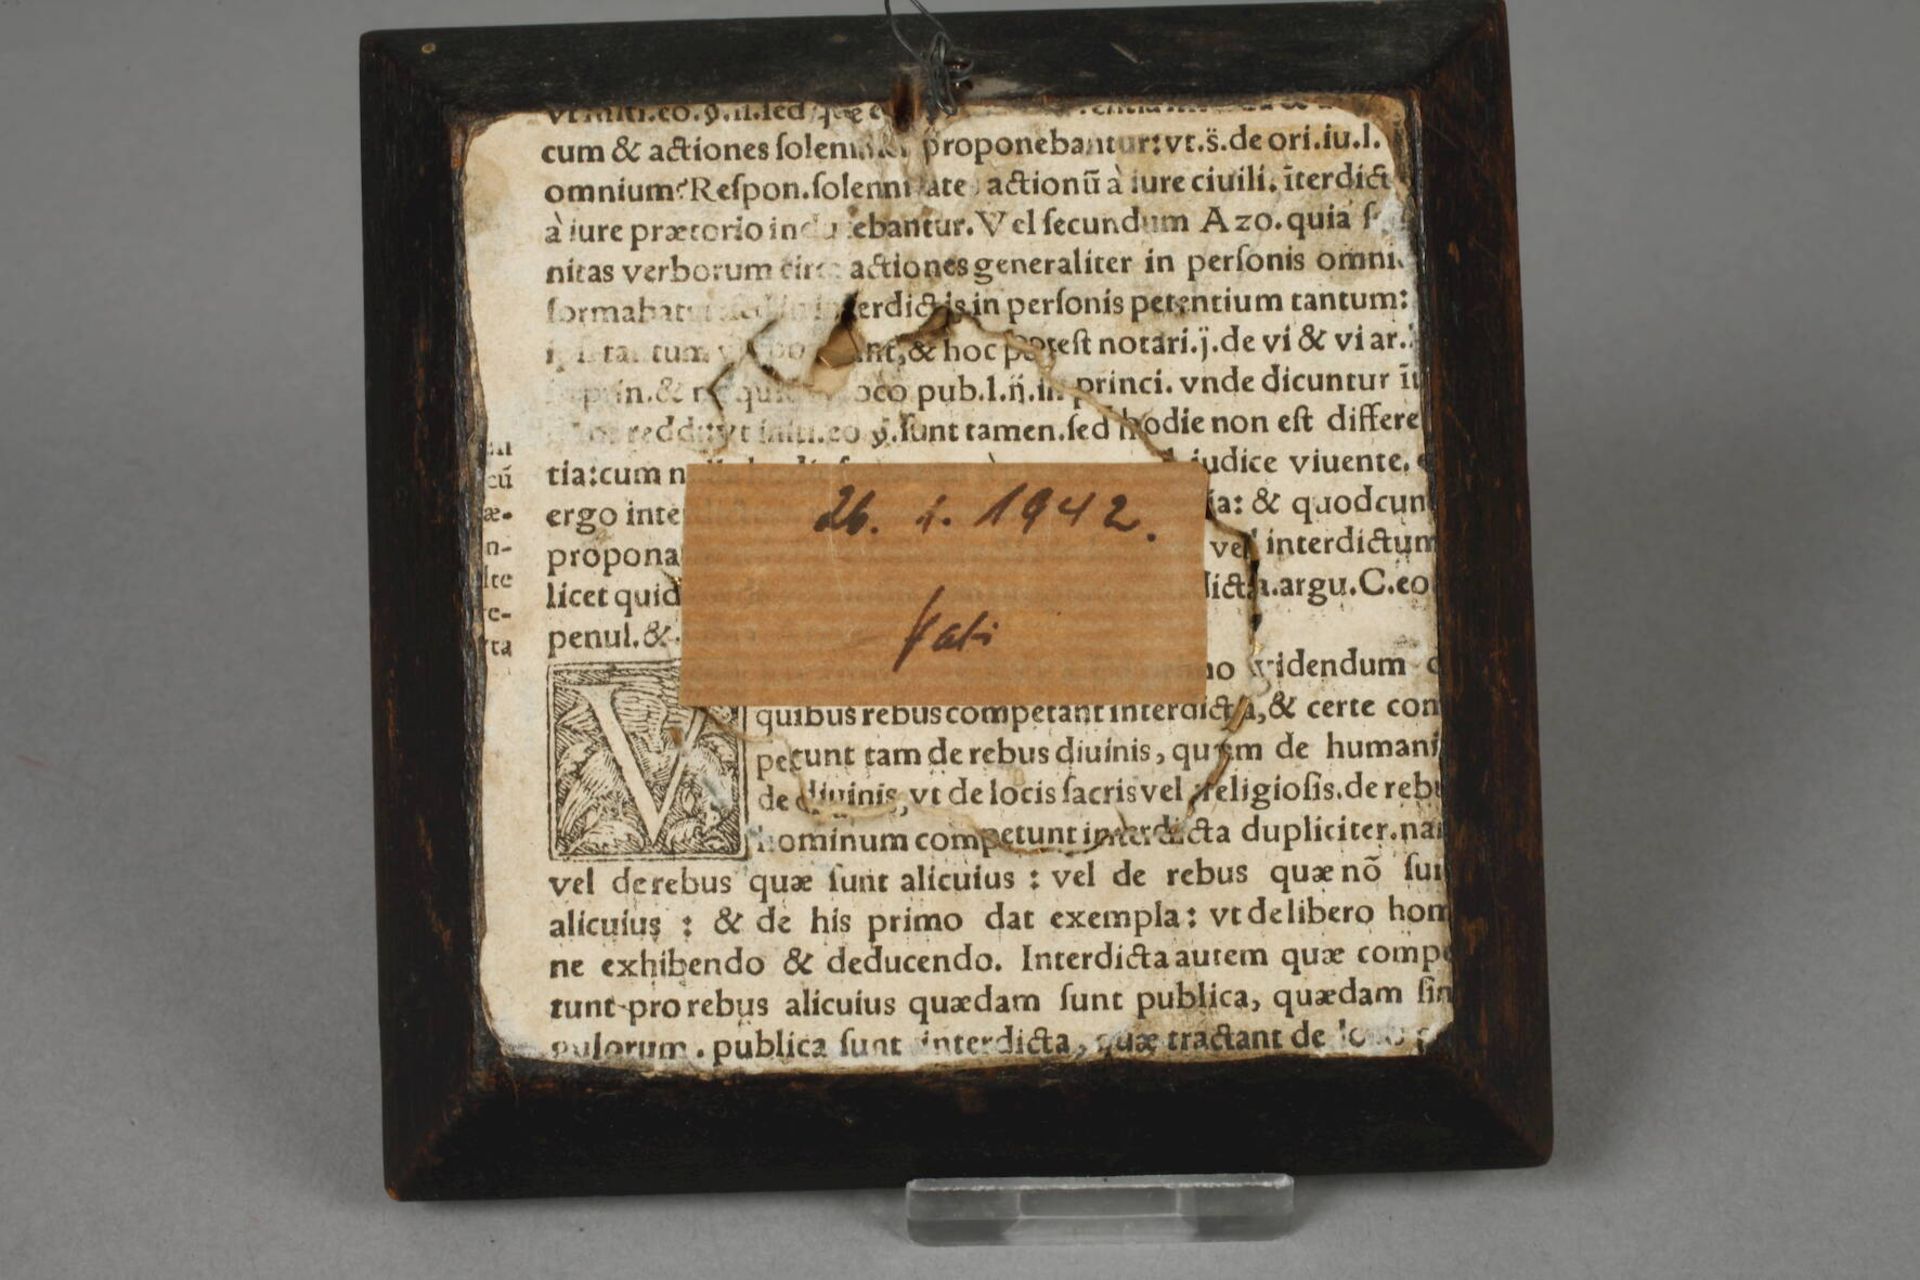 cum & actiones solen proponebantur: vt.s̈.de ori.iu.l.
omnium? Respon. solenni ate actionũ à iure ciuili. ĩterdict
à iure prætorio in ebantur. Vel secundum Azo. quia
nitas verborum circ actiones generaliter in personis omni
formabat erdictis in personis petentium tantum:
tantum nt, & hoc potest notari.j. de vi & vi ar.
prin. & qui oco pub.l.ij.in princi. vnde dicuntur ĩt
reddi vt initi.eo ꝯ. sunt tamen. sed hodie non est differe
tia: cum n iudice viuente.
cũ
æ- ergo inte ia: & quodcun
n- propona vel interdictum
lte licet quid dicta. argu. C. eo
re- penul. &
ta
26. 1. 1942.
V
no videndum
quibus rebus competant interdicta, & certe com
petunt tam de rebus diuinis, quam de humani
de diuinis, vt de locis sacris vel religiosis. de reb
hominum competunt interdicta dupliciter. na
vel de rebus quæ sunt alicuius : vel de rebus quæ nõ sun
alicuius : & de his primo dat exempla: vt de libero hom
ne exhibendo & deducendo. Interdicta autem quæ compe
tunt pro rebus alicuius quædam sunt publica, quædam sin
gulorum. publica sunt interdicta, quæ tractant de